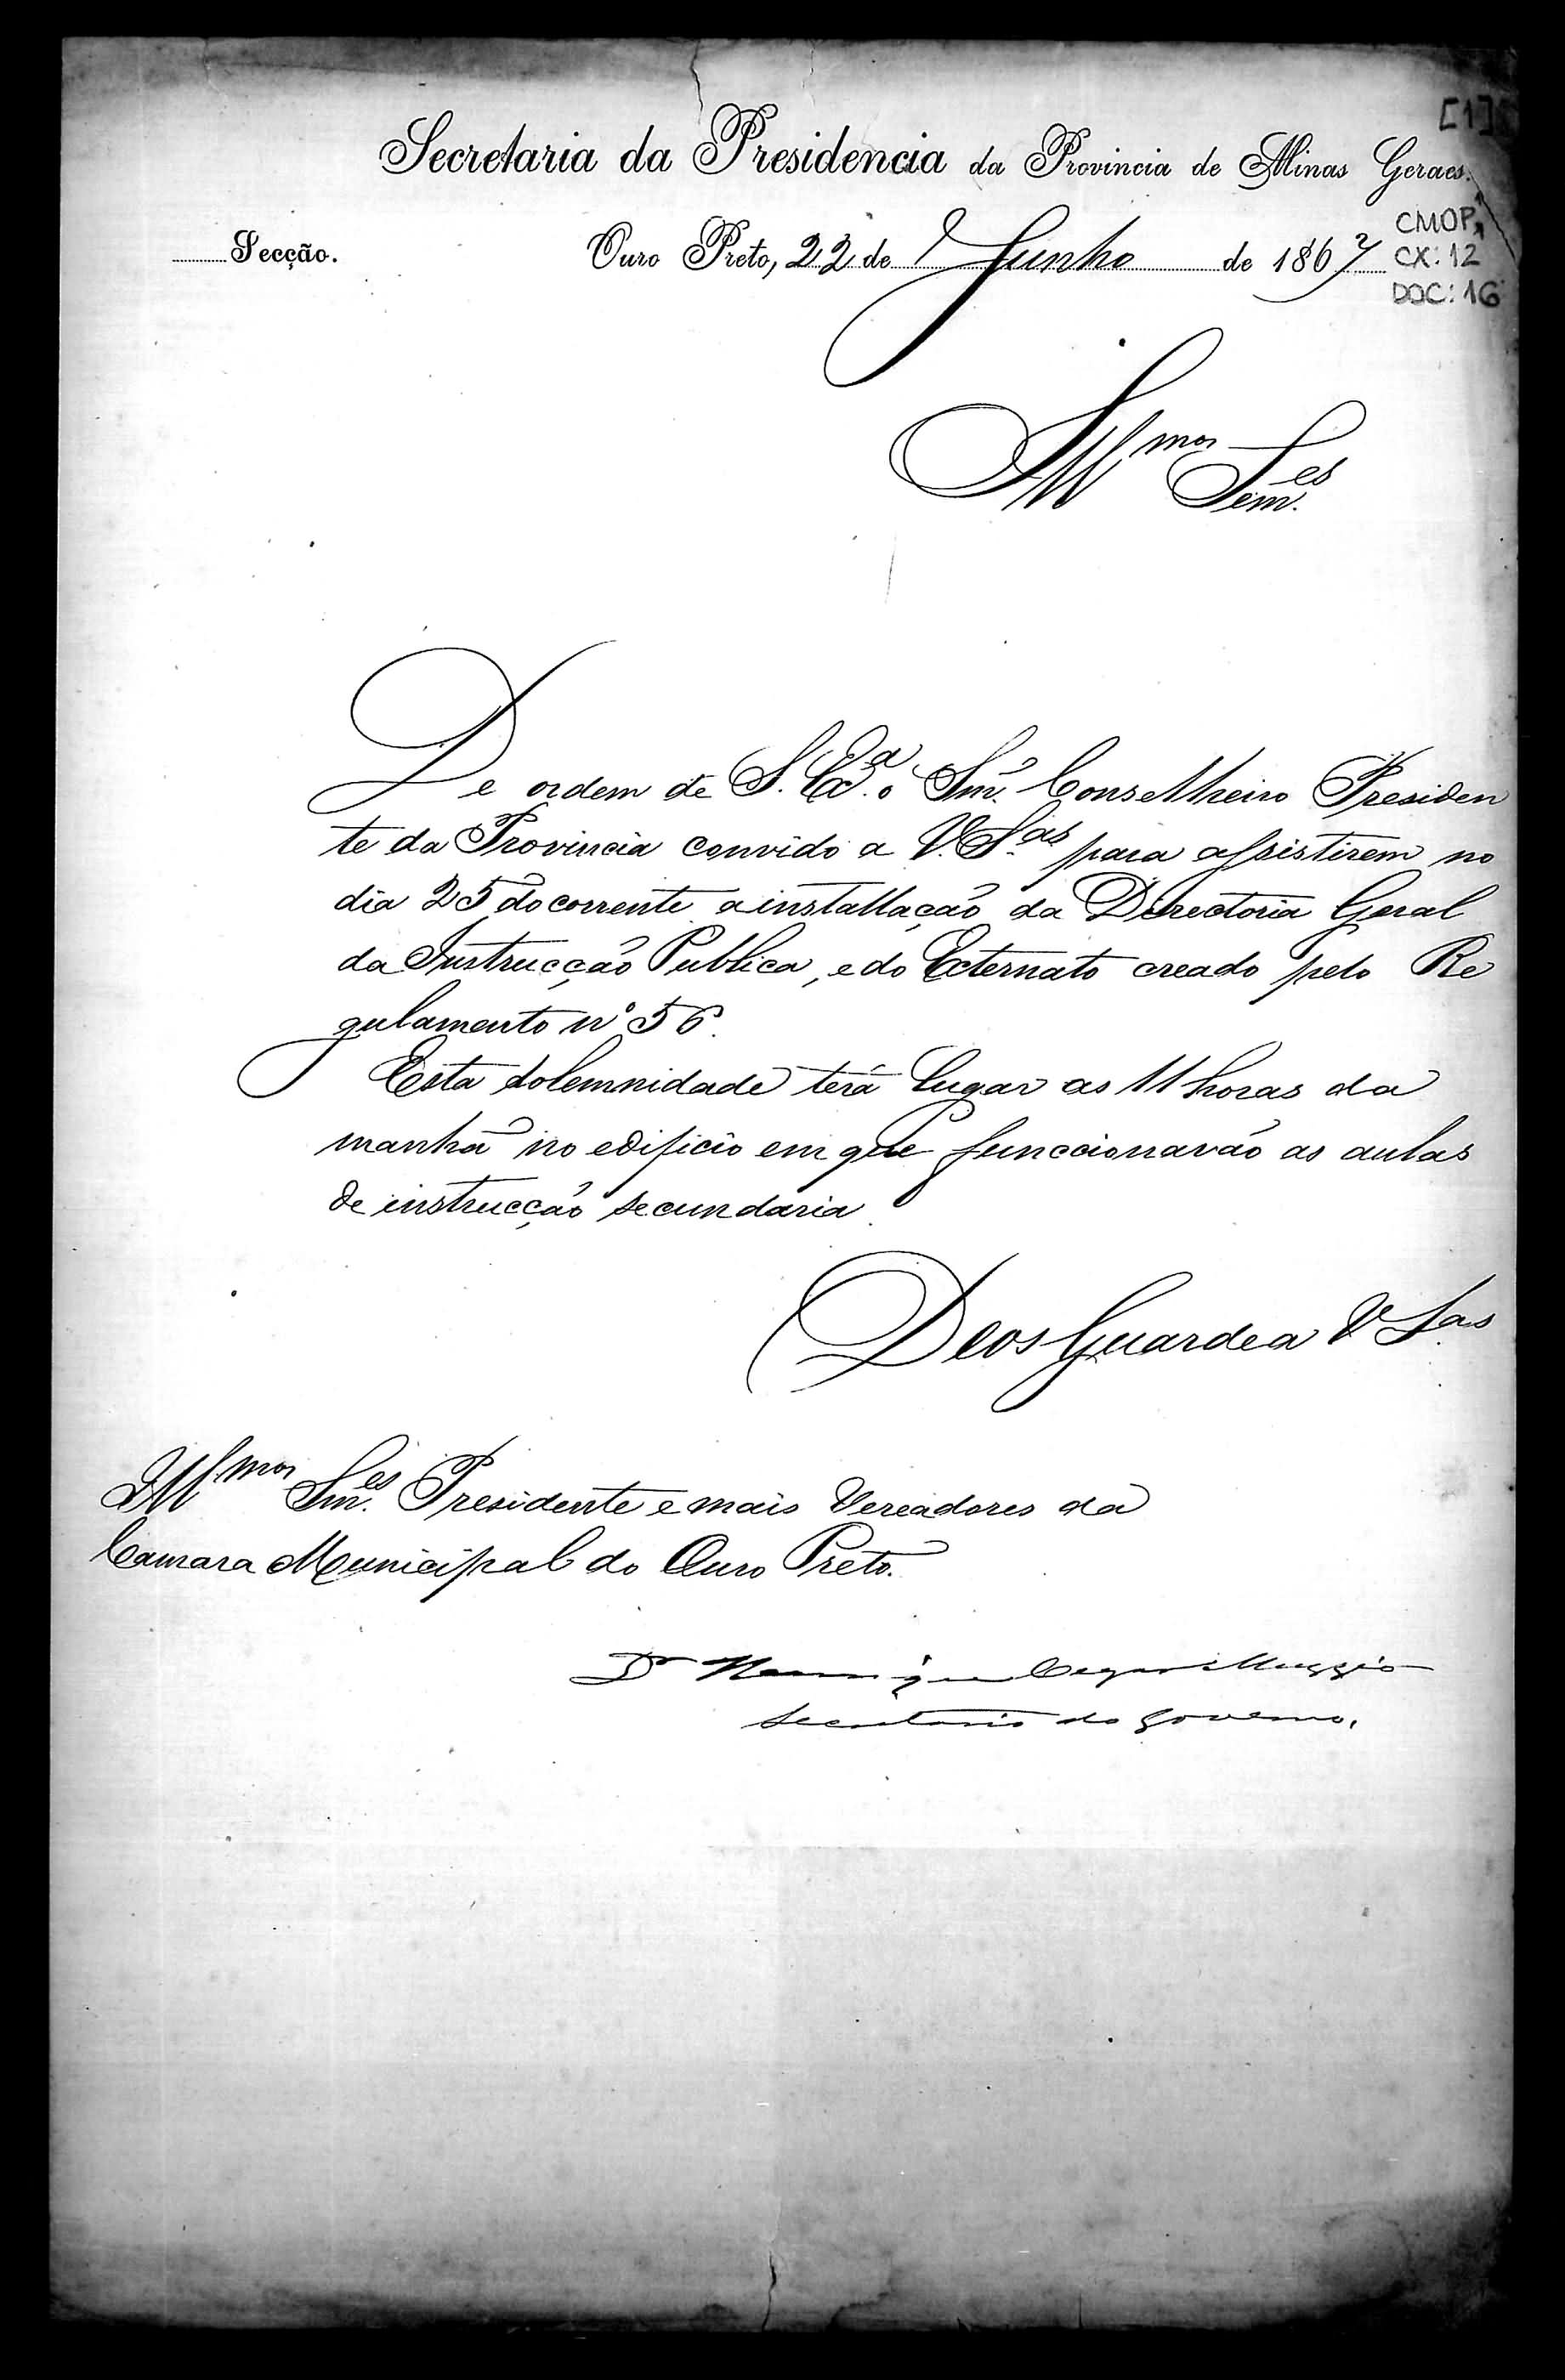 [1]
Secretaria da Presidencia da Provincia de Minas Geraes.
CMOP,
Secção. Ouro Preto, 22 de Junho de 1867
CX: 12
DOC: 16
Illmos Snres.
De ordem de S. Exa. o Snr. Conselheiro Presiden
te da Provincia convido a V. Sas para assistirem no
dia 25 do corrente a installação da Directoria Geral
da Instrucção Publica, e do Externato creado pelo Re
gulamento nº 56.
Esta solemnidade terá lugar as 11 horas da
manhã no edificio em que funccionarão as aulas
de instrucção secundaria.
Deos Guarde a V Sas
Illmos Snres. Presidente e mais Vereadores da
Camara Municipal do Ouro Preto.
Dr Henrique Cezar Muzzio
Secretario do Governo.